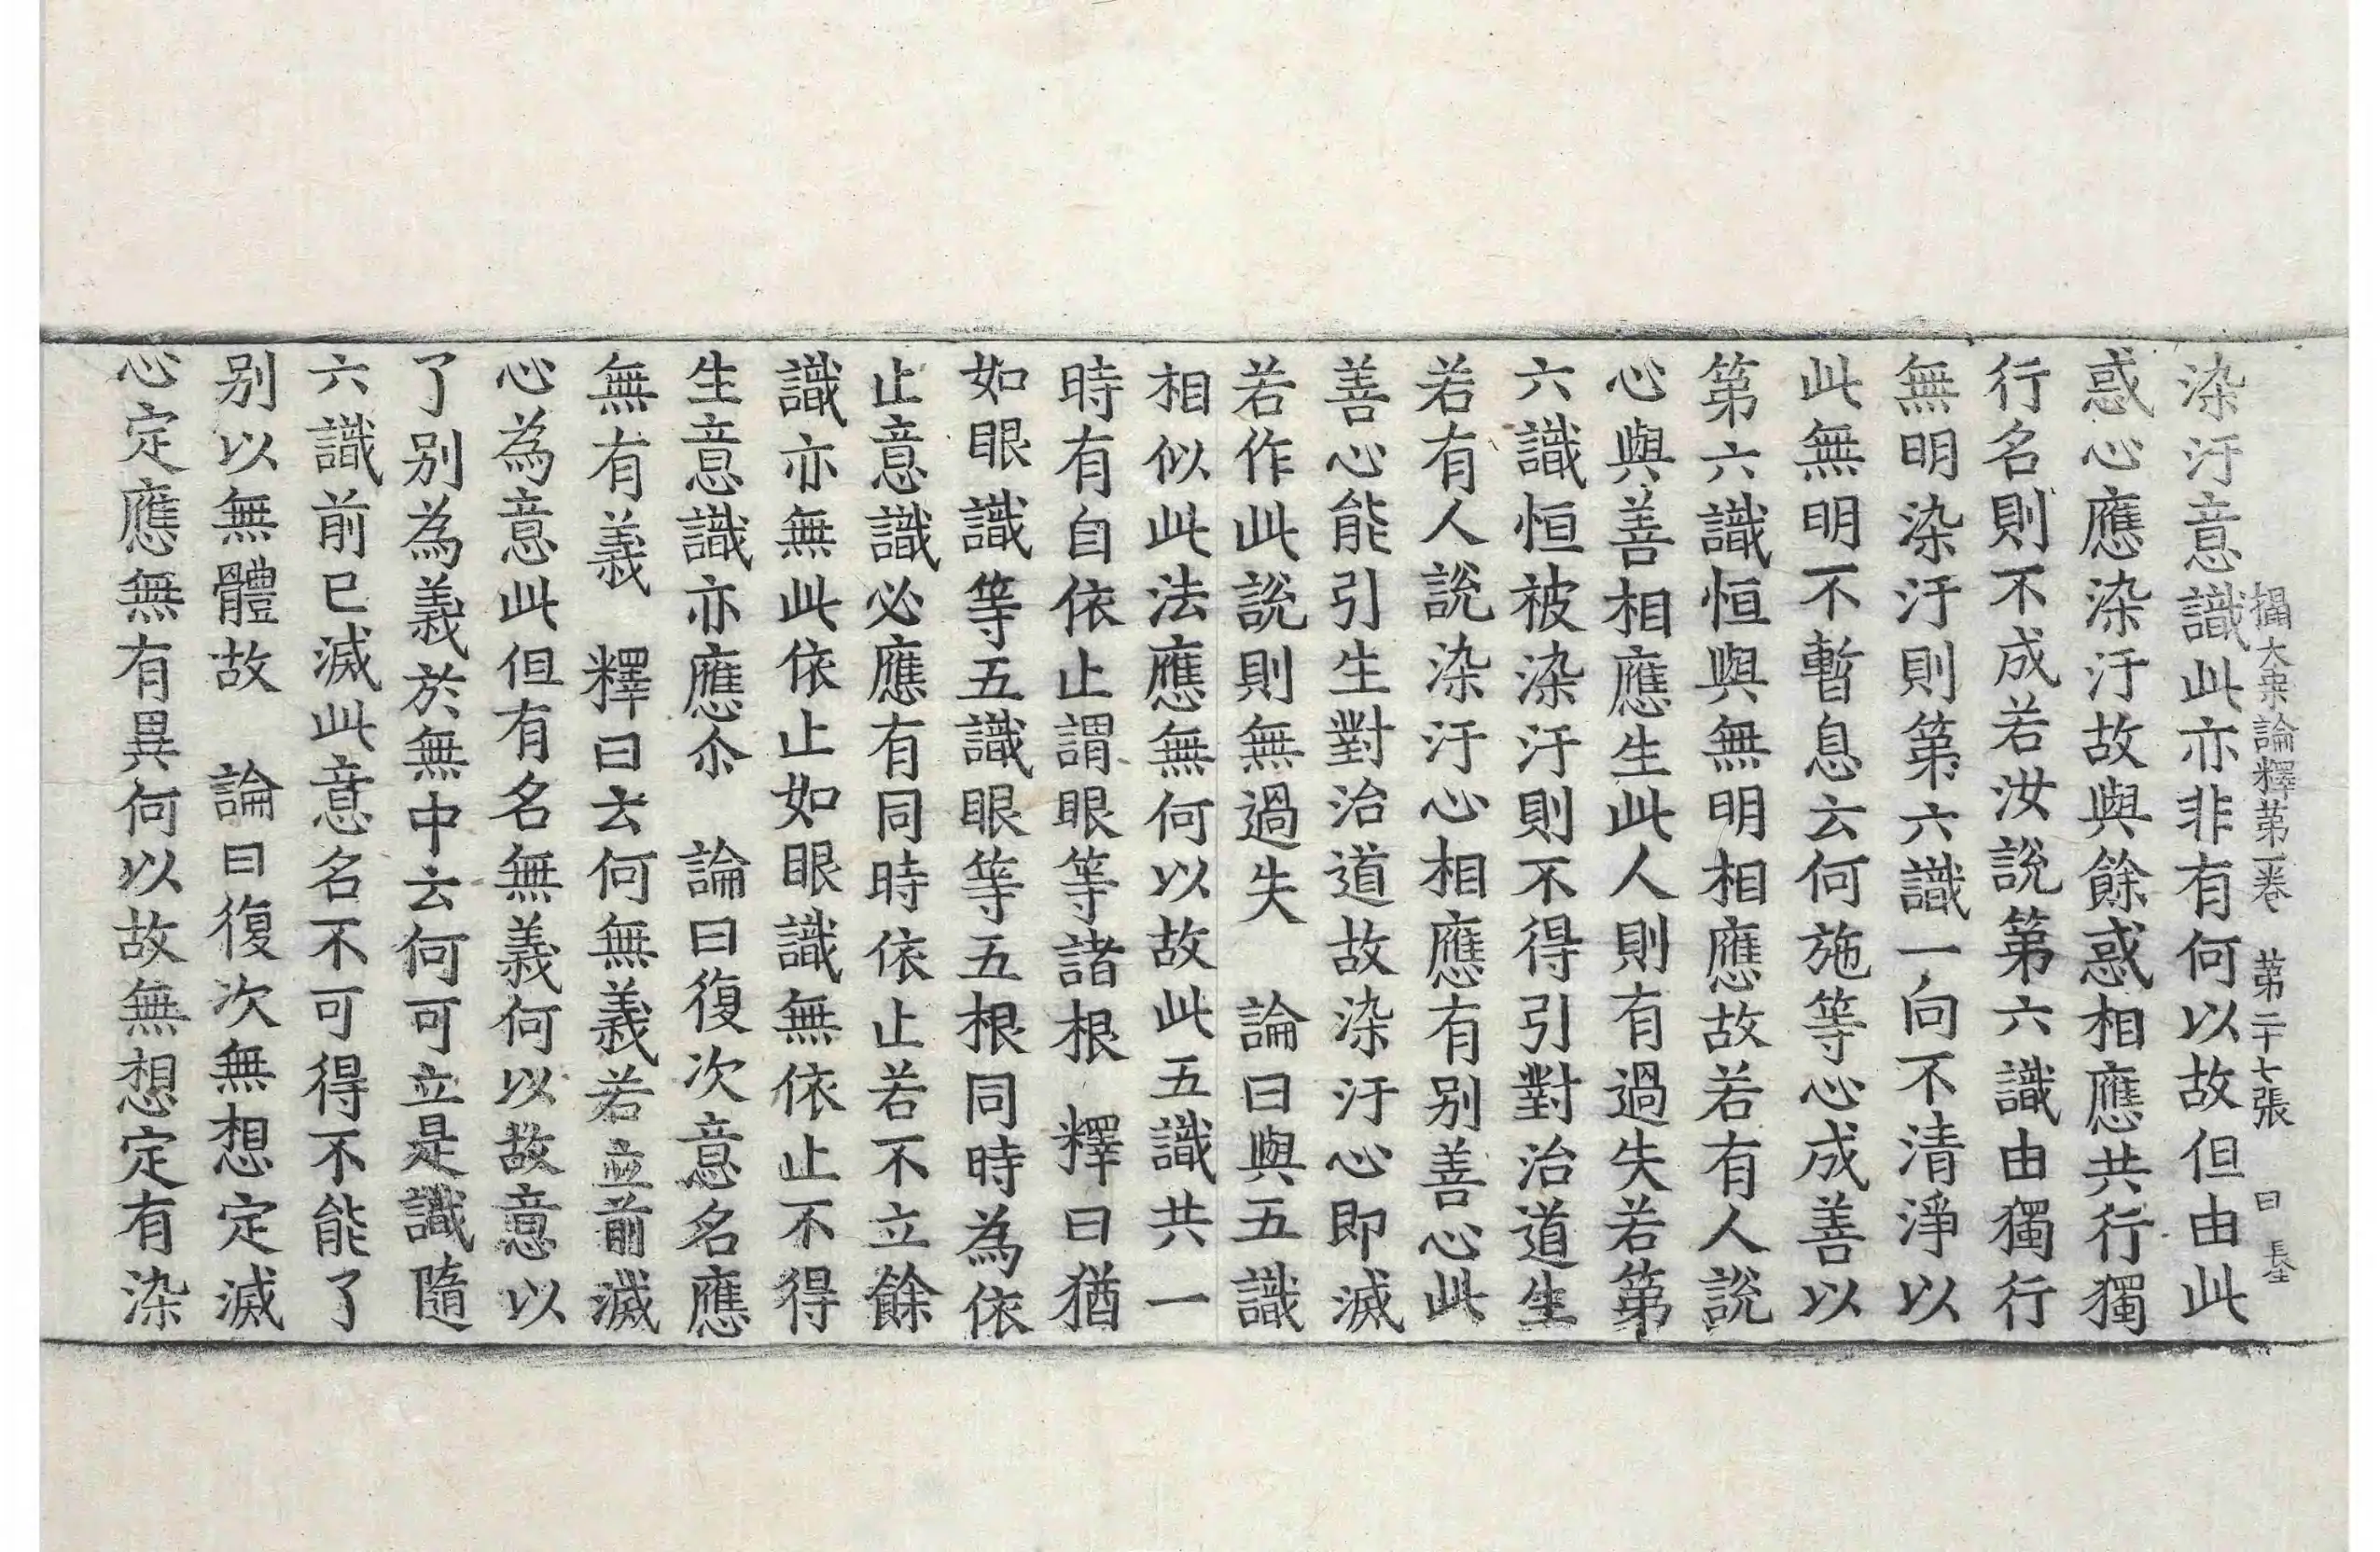 攝大乗論釋第一卷 第二十七張 曰
染汙意識此亦非有何以故但由此
惑心應染汙故與餘惑相應共行獨
行名則不成若汝說第六識由獨行
無明染汙則第六識一向不清淨以
此無明不暫息云何施等心成善以
第六識恒與無明相應故若有人說
心與善相應生此人則有過失若第
六識恒被染汙則不得引對治道生
若有人說染汙心相應有別善心此
善心能引生對治道故染汙心即滅
若作此說則無過失 論曰與五識
相似此法應無何以故此五識共一
時有自依止謂眼等諸根 釋曰猶
如眼識等五識眼等五根同時為依
止意識必應有同時依止若不立餘
識亦無此依止如眼識無依止不得
生意識亦應尒 論曰復次意名應
無有義 釋曰云何無義若立前滅
心為意此但有名無義何以故意以
了别為義於無中云何可立是識隨
六識前已滅此意名不可得不能了
别以無體故 論曰復次無想定滅
心定應無有異何以故無想定有染